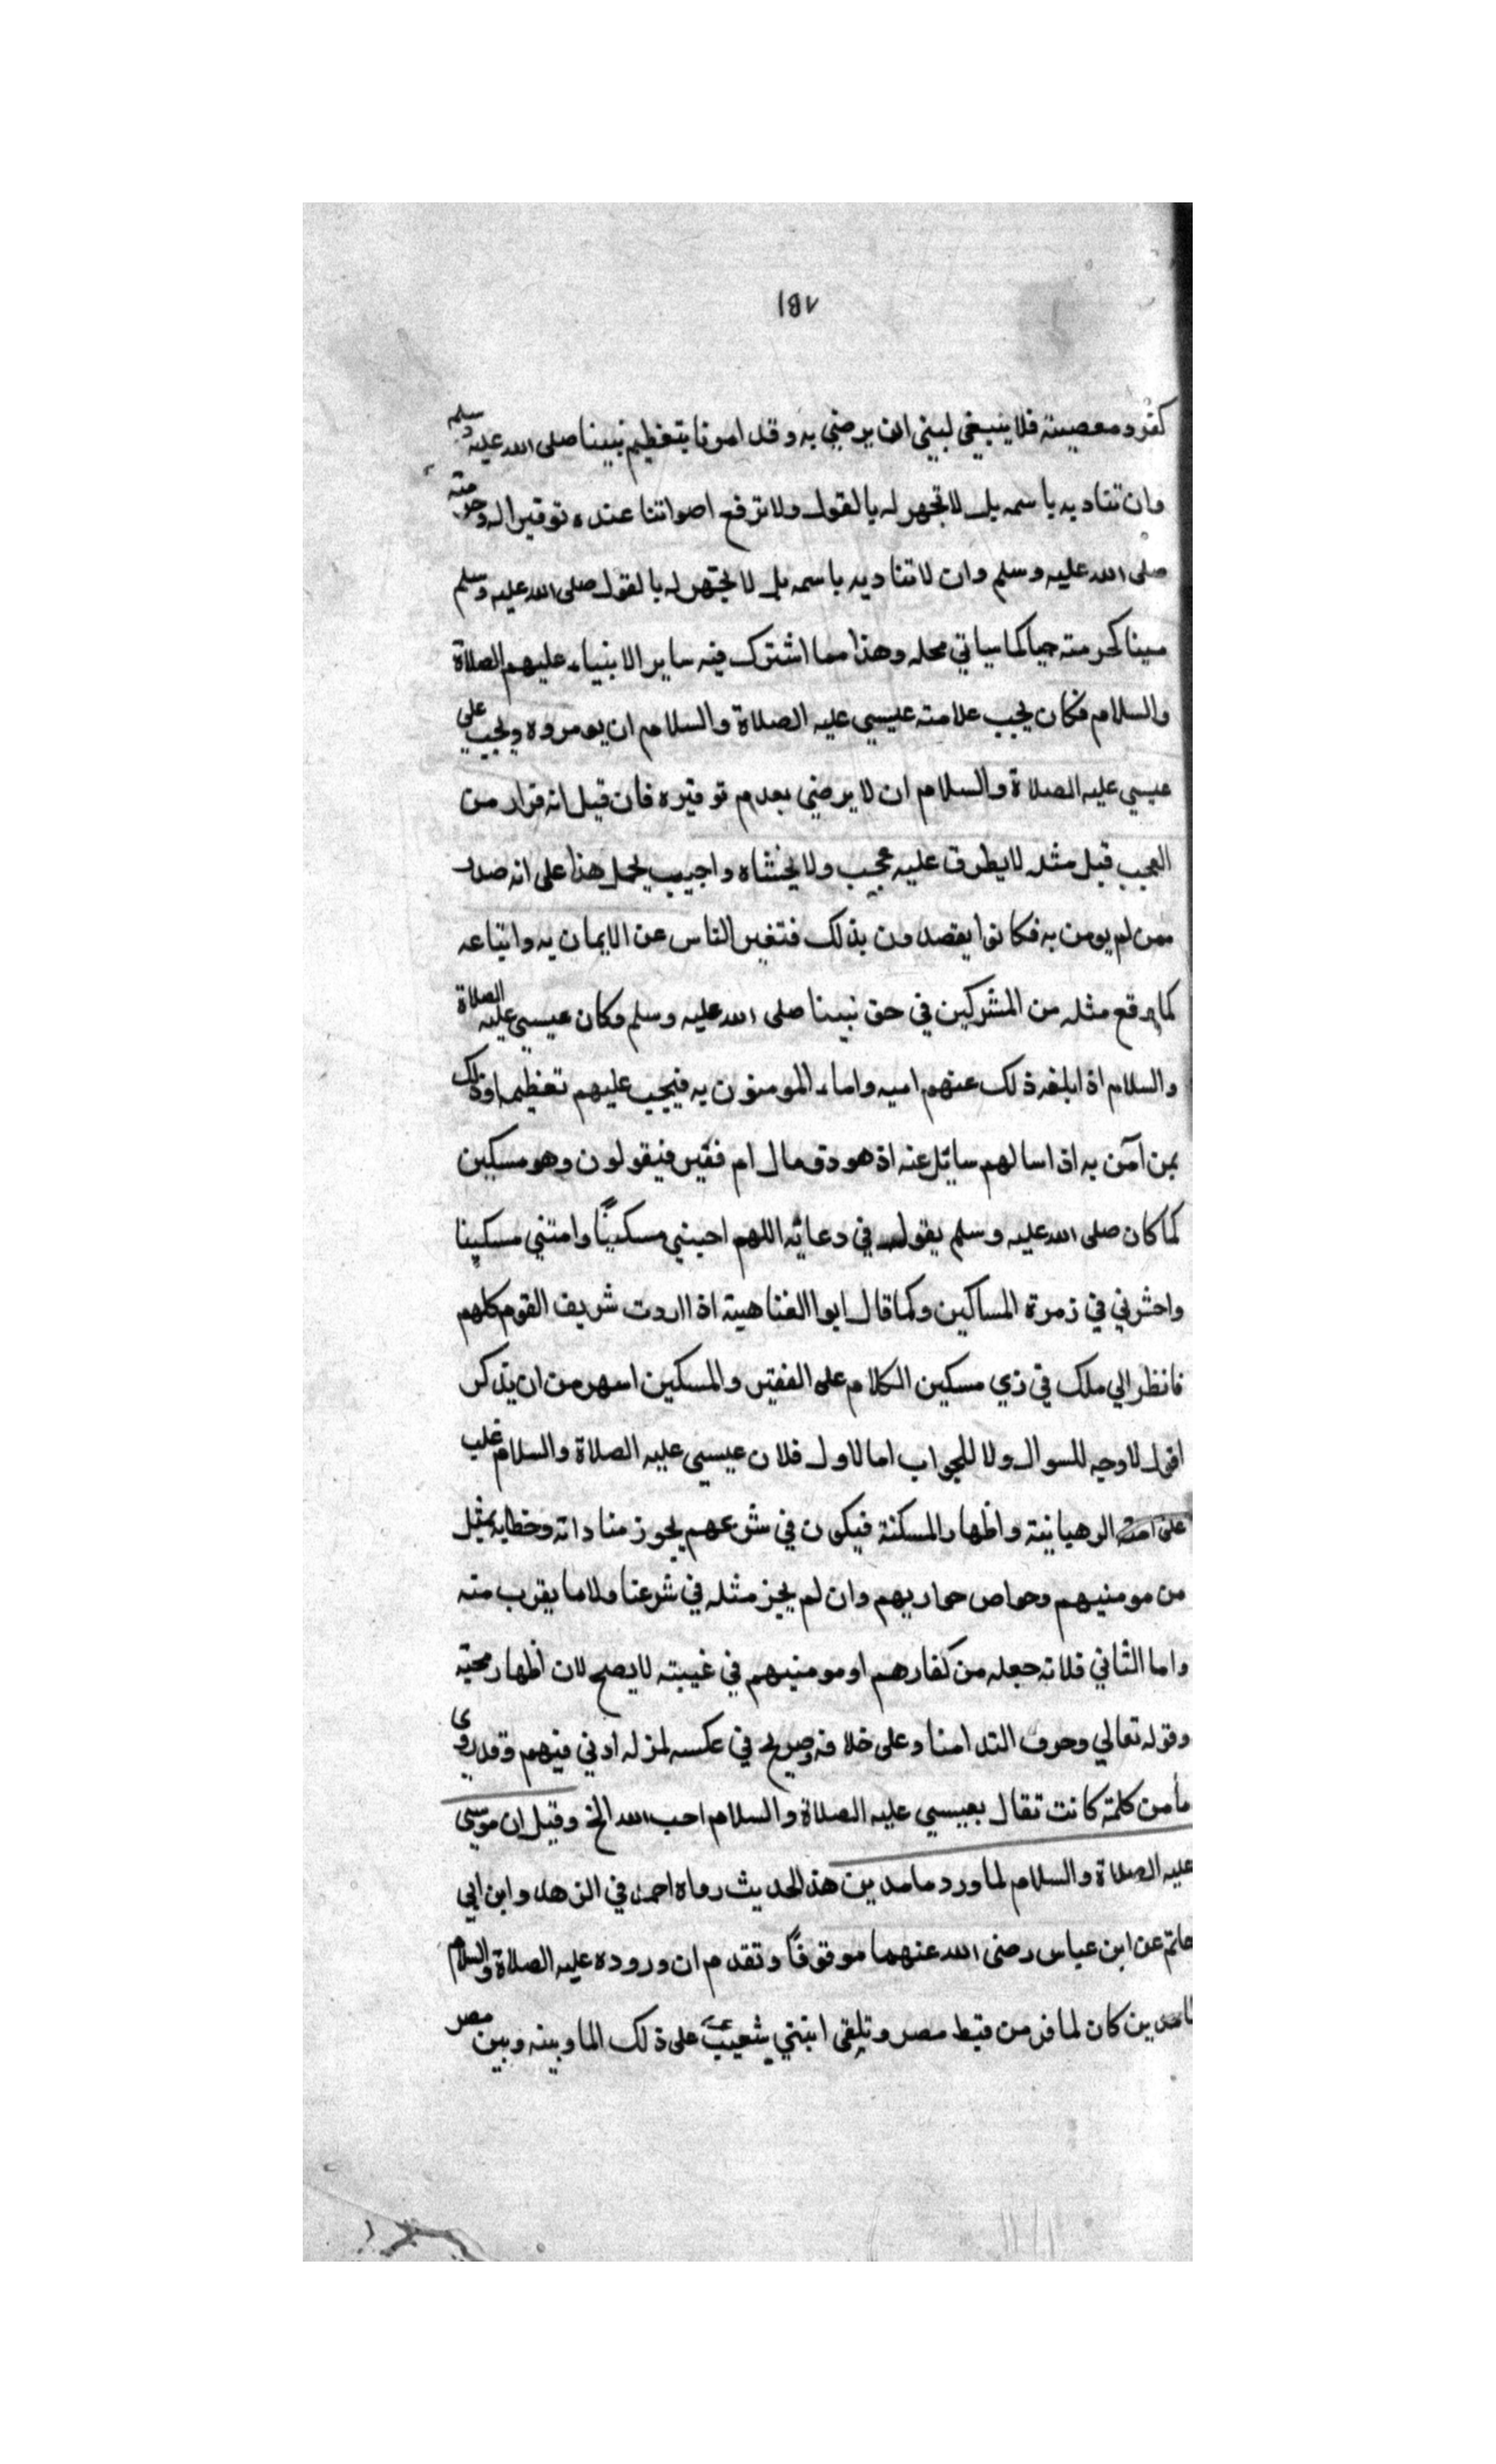 ١٨٧
كفر ومعصية فلا ينبغي لبني ان يرضي به وقد امرنا بتعظيم نبينا صلى الله عليه وسلم
وان تناديه باسمه بل لا تجهر له بالقول ولا ترفع اصواتنا عنده توقيرا له وحرمته
صلى الله عليه وسلم وان لا تناديه باسمه بل لا يجهر له بالقول صلى الله عليه وسلم
ميتا كحرمته حيا كما سياتي محله وهذا مما اشترك فيه ساير الانبياء عليهم الصلاة
والسلام فكان يجب علامته عيسي عليه الصلاة والسلام ان يومروه ويجب علي
عيسي عليه الصلاة والسلام ان لا يرضي بعدم توقيره فان قيل انه فرار من
العجب قيل مثله لا يطرق عليه عجب ولا يخشاه واجيب يحمل هذا على انه صدر
ممن لم يومن به فكانوا يقصدون بذلك فتغير الناس عن الايمان به واتباعه
كما وقع مثله من المشركين في حق نبينا صلى الله عليه وسلم وكان عيسي عليه الصلاة
والسلام اذا بلغه ذلك عنهم اميه واما المومنون به فيجب عليهم تعظيمه وذلك
بمن آمن به اذا سالهم سائل عنه اذ هو ذو مال ام فقير فيقولون وهو مسكين
كما كان صلى الله عليه وسلم يقول في دعائه اللهم احيني مسكينًا وامتني مسكينا
واحشرني في زمرة المساكين وكما قال ابوا الغناهية اذا اردت شريف القوم كلهم
فانظر الي ملك في زي مسكين الكلام على الفقير والمسكين اسهر من ان يذكر
اقول لا وجه للسوال ولا للجواب اما لاول فلان عيسي عليه الصلاة والسلام غلب
على امته الرهبانية واظهار المسكنة فيكون في شرعهم يجوز مناداته وخطابه بمثل
من مومنيهم وخواص حواريهم وان لم يجز مثله في شرعنا ولا ما يقرب منه
واما الثاني فلانه جعله من كفارهم او مومنيهم في غيبته لا يصح لان اظهار محبته
وقوله تعالي وحرف الندا منا وعلى خلافه وصريح في عكسه لمن له ادني فهم وقد روي
ما من كلمة كانت تقال بعيسي عليه الصلاة والسلام احب الله الخ وقيل ان موسي
عليه الصلاة والسلام لما ورد ما مدين هذا الحديث رواه احمد في الزهد وابن ابي
حاتم عن ابن عباس رضى الله عنهما موقوفًا وتقدم ان وروده عليه الصلاة والسلام
ما مدين كان لما فر من قبط مصر وتلقى ابنتي شعيب على ذلك الما وبينه وبين مصر